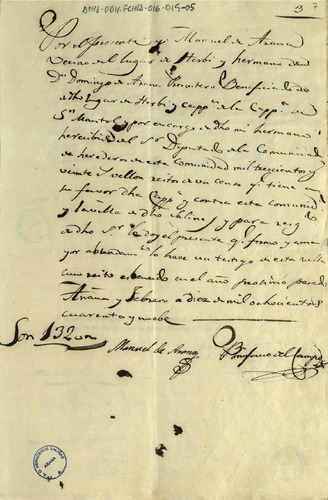 ATHA-DOH-FCHID-016-019-05
3
Por el presente yo Manuel de Arana
Vecino del lugar de Herbi y hermano de
Dn. Domingo de Arana Presvitero Beneficiado
dho lugar de Herbi y Cappn. de la Cappa. de
Sn. Mantel y por encargo de dho mi hermano
he recibido del Sr. Diputado de la Comunidad
de herederos de esta comunidad mil trescientos y
veinte rs. vellon reditos de un censo qe. tiene a
su favor dha Capa. y contra esta comunidad
y la villa de dho Salinas y para resg
de dho Sr. le doy el presente qe. firmo y a ma
yor abundam. lo hace un testigo de esta villa
cuio redito es vencido en el año proximo pasado
Añana y Febrero a diez de mil ochocientos
cuarenta y nuebe
Son 1320 rn
Manuel de Arana
Bonifacio del Campo